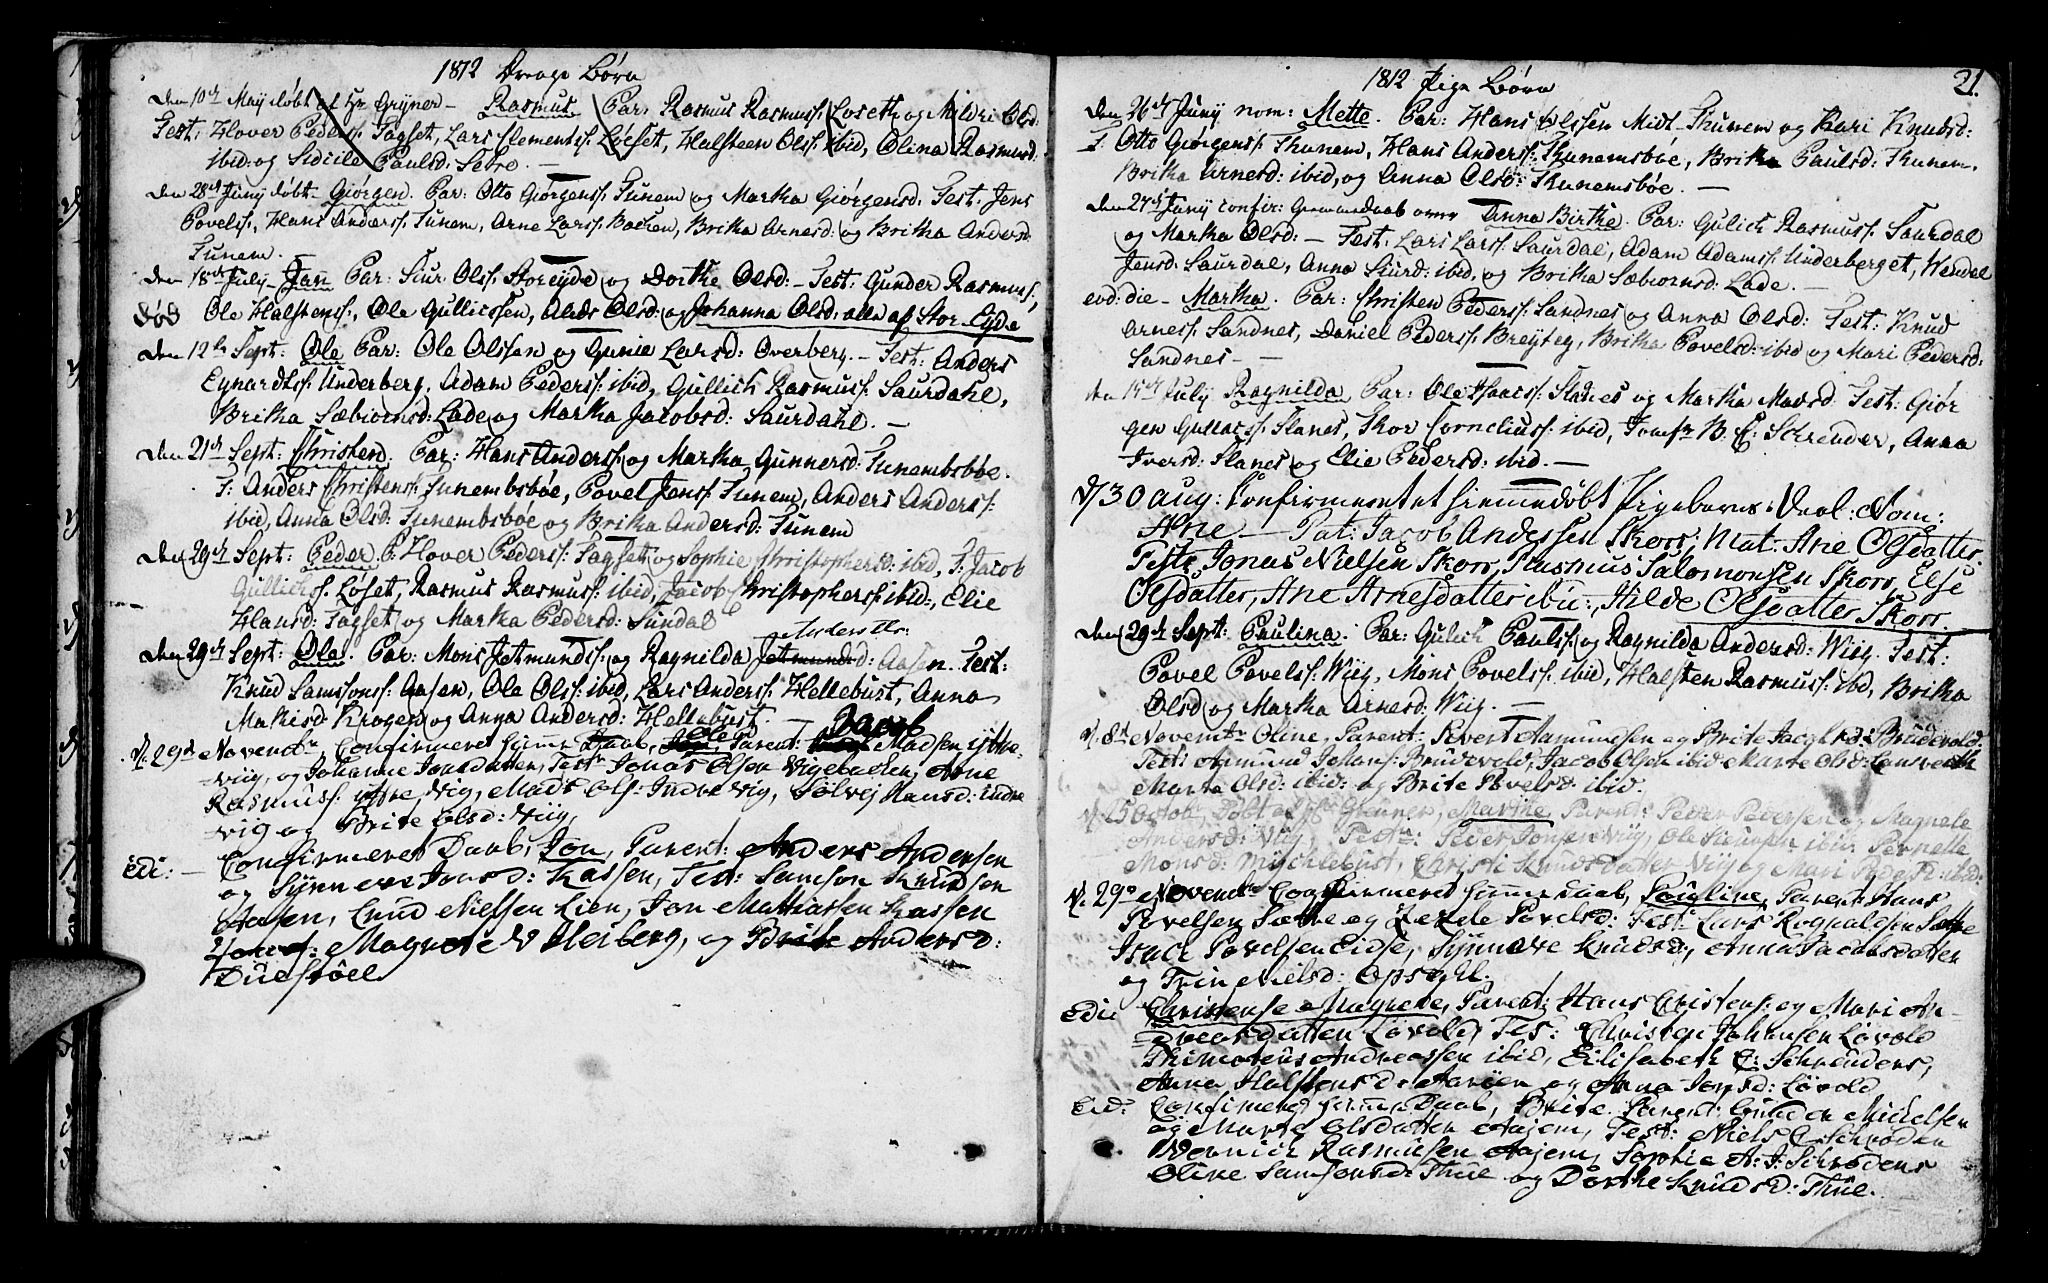 1812 Drenge Børn
Den 10de Maij døbt af Hr Grÿner - Rasmus Par: Rasmus Rasmuss: Losetz og Mildri Olsd:
Test: Hover Peders: Tagset, Lars Clementss: Løset, Halsteen Olss: ibid, Olina Rasmusd.
ibid: og Sidsile Paulsd: Setre. -
Den 28de Junÿ døbt - Giørgen. Par: Otto Giørgenss: Tunem og Martha Giørgensd. Test: Jens
Povels:, Hans Anderss: Tunem, Arne Larss: Backen, Britha Arnesd: og Britha Andersd
Tunem.
den 18de Julÿ - Jan Par: Siur Olss: Storeÿde og Dorthe Olsd: - Test: Gunder Rasmus:,
død Ole Halstenss:, Ole Gullicssen, Olsd: og Johanna Olsd: alle af Stor-Eÿde
den 12te Sept: Ole Par: Ole Olssen og Gunie Larsd: Overberg. - Test: Anders
Eÿnardtss: Underberg, Adam Pederss: ibid, Gullich Rasmuss: Saurdahl,
Britha Sæbiørnsd: Lade og Martha Jacobsd: Saurdahl. -
den 21de Sept: Christen. Par: Hans Anderss: og Martha Gunnersd: Tunembsbøe.
T: Anders Christens: Tunembsbøe, Povel Jons: Tunem, Anders Anderss:
ibid, Anna Olsd: Tunembsbøe og Britha Andersd: Tunem
Den 29de Sept: Peder P: Hover Pederss: Tagset og Sophie Christophersd: ibid, T: Jacob
Gullichs: Løset, Rasmus Rasmuss: ibid, Jacob Christopherss: ibid:, Elie
Hansd: Tagset og Martha Pedersd: Sundal
Andersdtr:
den 29de Sept: Ola. Par: Mons Jetmundss: og Ragnilda Jetmundsd: Aasen Test:
Knud Samsonss: Aasen, Ole Olss: ibid, Lars Anderss: Hellebust, Anna
Mathisd: Krogen og Anna Andersd: Hellebust. -
Ole Jacob
d. 29de Novembr Confirmeret Daab, Parent: Madsen ÿttre
Viig, og Johanne Jonsdatter, Testr Jonas Olsen Vigebacken, Arne
Rasmuss: ÿttre Vig, Mads Ols: Indre Vig, Solvej Hansd: Indre
Vig og Brite Olsd: Viig,
Edi: - Confirmeret Daab, Jon, Parent: Anders Andersen
og Sÿnneve Jonsd: Kassen, Test: Samson Knudsen
Aasen, Cnud Nielsen Lien, Jon Mathiassen Kassen
Magnete V Heiberg, og Brite Andersd:
Duestöel
1812 Pige Børn 21.
Den 26de Junÿ nom: Mette. Par: Hans Olssen Midt-Thunem og Kari Knudsd:
T. Otto Giørgenss: Thunem, Hans Anderss: Thunemsbøe, Britha Paulsd: Thunem.
Britha Arnesd: ibid, og Anna Olsd: Thunemsbøe. -
den 27de Junÿ confir: over Anna Birthe. Par: Gulich Rasmuss: Saurdal
og Martha Olsd: - Test: Lars Larss: Saurdal, Adam Adamss: Underberget, Wendel
Jonsd: Saurdal, Anna Siurd: ibid, og Britha Sæbiørnsd: Lade. -
eod: die - Martha. Par: Christen Pederss: Sandnes og Anna Olsd: Test: Knud
Arness: Sandnes, Daniel Pederss: Breÿteg, Britha Povelsd: ibid og Mari Pedersd:
Sandnes -
den 15de Julÿ Ragnilda Par: Ole Isaacs: Slanes og Martha Madsd Test: Giør
gen Gullics: Slanes, Thor Cornelius: ibid, Jomfr B. E: Schreuder, Anna
Iversd: Slanes og Elie Pedersd: ibid. -
d/ 30 aug: Confirmeret et hiemmedøbt Pigebarns: Daab: Nom:
Ane - Pat: Jacob Anderssen Skorr, Mat: Ane Olsdatter.
Teste Jonas Nielsen Skorr, Rasmus Salomonsen Skorr, Else
Olsdatter, Ane Arnesdatter ibid:, Hilde Olsdatter Skorr.
den 29de Sept: Paulina. Par: Gulich Pauls: og Ragnilda Andersd: Wiig. Test:
Povel Povelss: Wiig, Mons Povelss: ibid, Halsten Rasmuss: ibd, Britha
Olsd og Martha Arnesd: Wiig. -
d. 8de Novembr Oline, Parent: Severt Aamundsen og Brite Jacobsd: Brudevold:
Test: Amund Johans: Brudevold, Jacob Olsen ibid Marte Olsd:
Marte Olsd: ibid: og Brite Povelsd: ibid.
d. 25 Octob: Døbt af Hr Grüner, Marthe, Parent: Peder Pedersen og Magnele
Andersd: Viig, Testr: Peder Jonsen Viig, Ole Sieursen ibid: Pernelle
Monsd: Mÿchlebust, Christi Knudsdatter Viig og Mari Peders: ibid:
d. 29de Novembr Confirmeret Daab, Pauline, Parent: Hans
Povelsen Sætre og Povelsd: Test: Lars Rognaldsen Sætre
Isach Povelsen Eidse, Sÿnneve Knudsd:, Anna Jacobsdatter
og Trin Nielsd: Opsahl.
Edi: Christense Magrete, Parent: Hans Cristens: og Mari An-
dreasdatter Løvold, Tes: Christen Johansen Løvold
Thimoteus Andreassen ibid, Elisabeth E: Schreuders,
Anna Halstensd: Aarøen og Anna Jonsd: Løvold
Eid: Confirmeret Daab, Brite. Parent: Gunder Mickelsen
og Marte Olsdatter Aajem, Test: Niels C Schröder
Wernich Rasmusen Aajem, Sophie A: J: Schröders
Oline Samsonsd: Thue og Dorthe Knudsd: Thue.